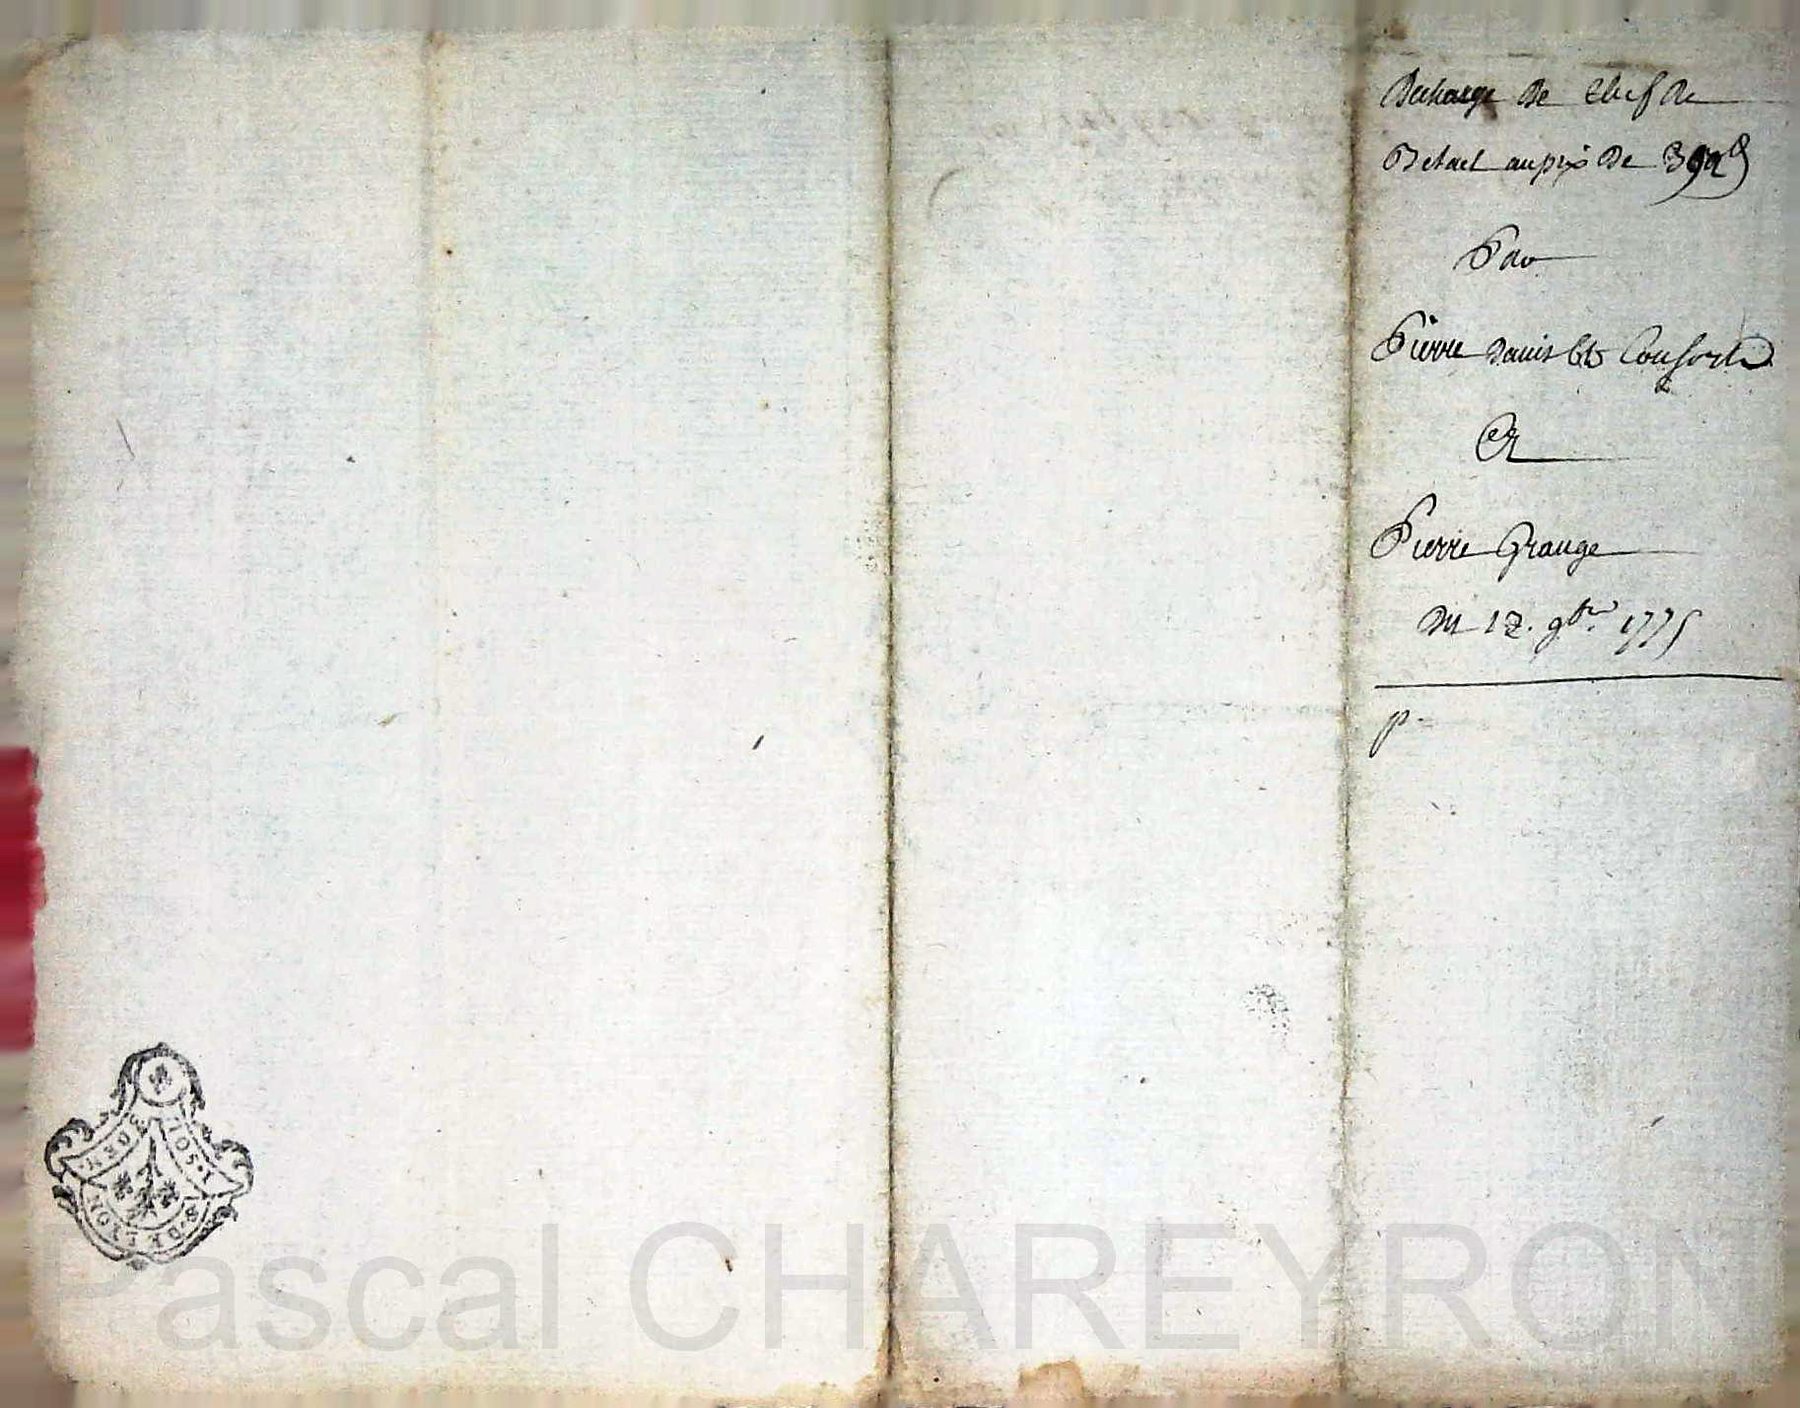 Decharge de Chef de
Betail au prix de 392#
Par
Pierre Danis et Consorts
Et
Pierre Grange
Du 12. 9bre 1775
p.
1 SOL 
G DE LYON
Pascal CHAREYRON